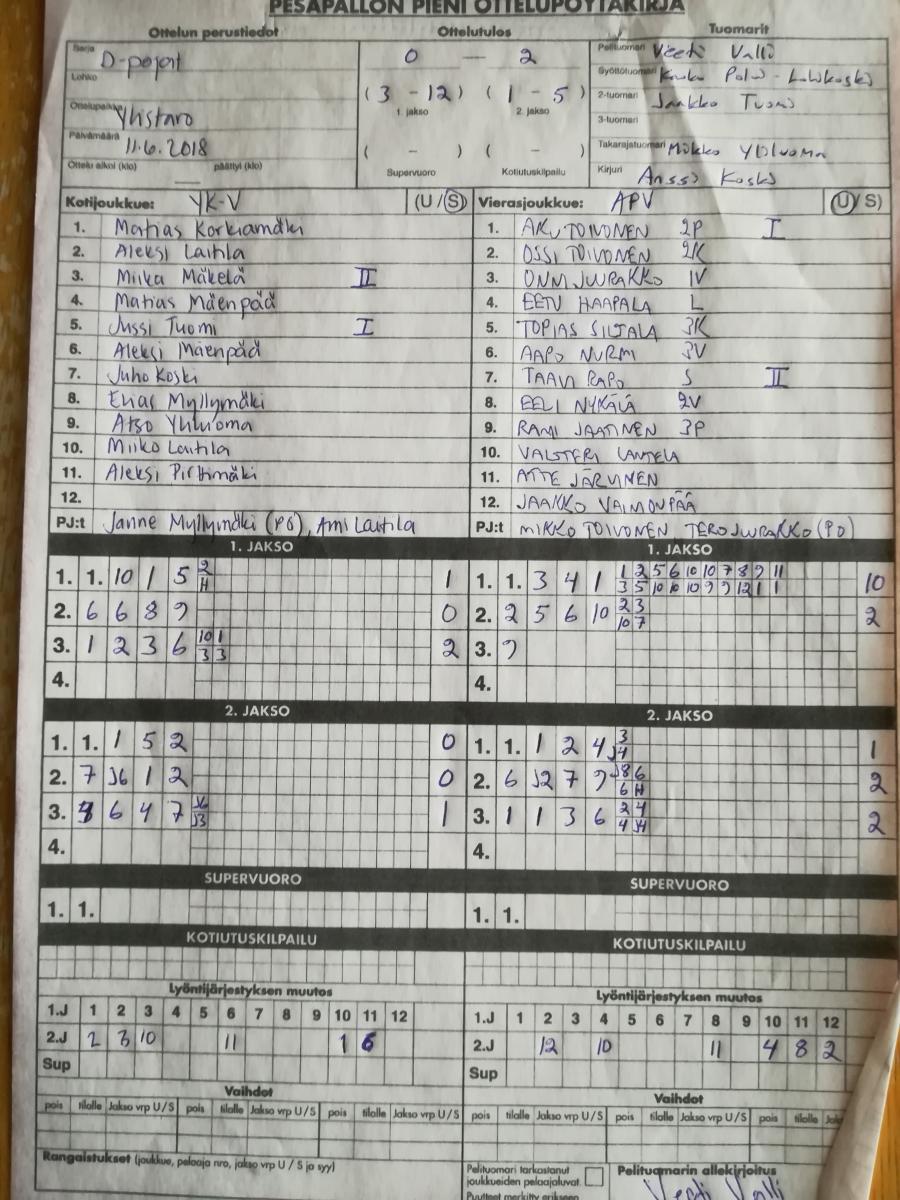 PESÄPALLON PIENI OTTELUPÖYTÄKIRJA
Ottelun perustiedot Ottelutulos Tuomarit
Sarja D-pojat 0 — 2 Pelituomari Veeti Valli
Lohko Syöttötuomari
(3 - 12) (1 - 5) 2-tuomari Jaakko Tuomi
1. jakso 2. jakso
Ottelupaikka Ylistaro 3-tuomari
Päivämäärä 11.6.2018 ( - ) ( - ) Takarajatuomari Mikko Yliluoma
Ottelu alkoi (klo) — päättyi (klo) Supervuoro Kotiutuskilpailu Kirjuri Anssi Koski
Kotijoukkue: YK-V (U / S) Vierasjoukkue: APV (U / S)
1. Matias Korkiamäki 1. AKU TOIVONEN 2P I
2. Aleksi Laitila 2. OSSI TOIVONEN 2K
3. Miika Mäkelä II 3. ONNI JUURAKKO 1V
4. Matias Mäenpää 4. EETU HAAPALA L
5. Jussi Tuomi I 5. TOPIAS SILTALA 3K
6. Aleksi Mäenpää 6. AAPO NURMI 3V
7. Juho Koski 7. TAAVI RAPO S II
8. Elias Myllymäki 8. EELI NYKÄLÄ 2V
9. Atso Yliluoma 9. RAMI JAATINEN 3P
10. Miiko Laitila 10. VALTTERI LANTELA
11. Aleksi Pirttimäki 11. ATTE JÄRVINEN
12. 12. JAAKKO VAIMONPÄÄ
PJ:t Janne Myllymäki (PO), Ami Laitila PJ:t MIKKO TOIVONEN TERO JUURAKKO (PO)
1. JAKSO 1. JAKSO
1. 1. 10 1 5 2 H 1 1. 1. 3 4 1 1 2 5 6 10 10 7 8 9 11 10
3 5 10 10 10 9 9 12 1 1
2. 6 6 8 9 0 2. 2 5 6 10 2 3 2
10 7
3. 1 2 3 6 10 1 2 3. 9
3 3
4. 4.
2. JAKSO 2. JAKSO
1. 1. 1 5 2 0 1. 1. 1 2 4 3 1
J4
2. 7 J6 1 2 0 2. 6 J2 7 9 J8 6 2
6 H
3. 6 4 7 J6 1 3. 1 1 3 6 2 4 2
J3 4 J4
4. 4.
SUPERVUORO SUPERVUORO
1. 1. 1. 1.
KOTIUTUSKILPAILU KOTIUTUSKILPAILU
Lyöntijärjestyksen muutos Lyöntijärjestyksen muutos
1.J 1 2 3 4 5 6 7 8 9 10 11 12 1.J 1 2 3 4 5 6 7 8 9 10 11 12
2.J 2 3 10 11 1 6 2.J 12 10 11 4 8 2
Sup Sup
Vaihdot Vaihdot
pois tilalle Jakso vrp U/S pois tilalle Jakso vrp U/S pois tilalle Jakso vrp U/S pois tilalle Jakso vrp U/S pois tilalle Jakso vrp U/S pois tilalle
Rangaistukset (joukkue, pelaaja nro, jakso vrp U / S ja syy) Pelituomari tarkastanut Pelituomarin allekirjoitus
joukkueiden pelaajaluvat. Veeti Valli
Puutteet merkitty erikseen